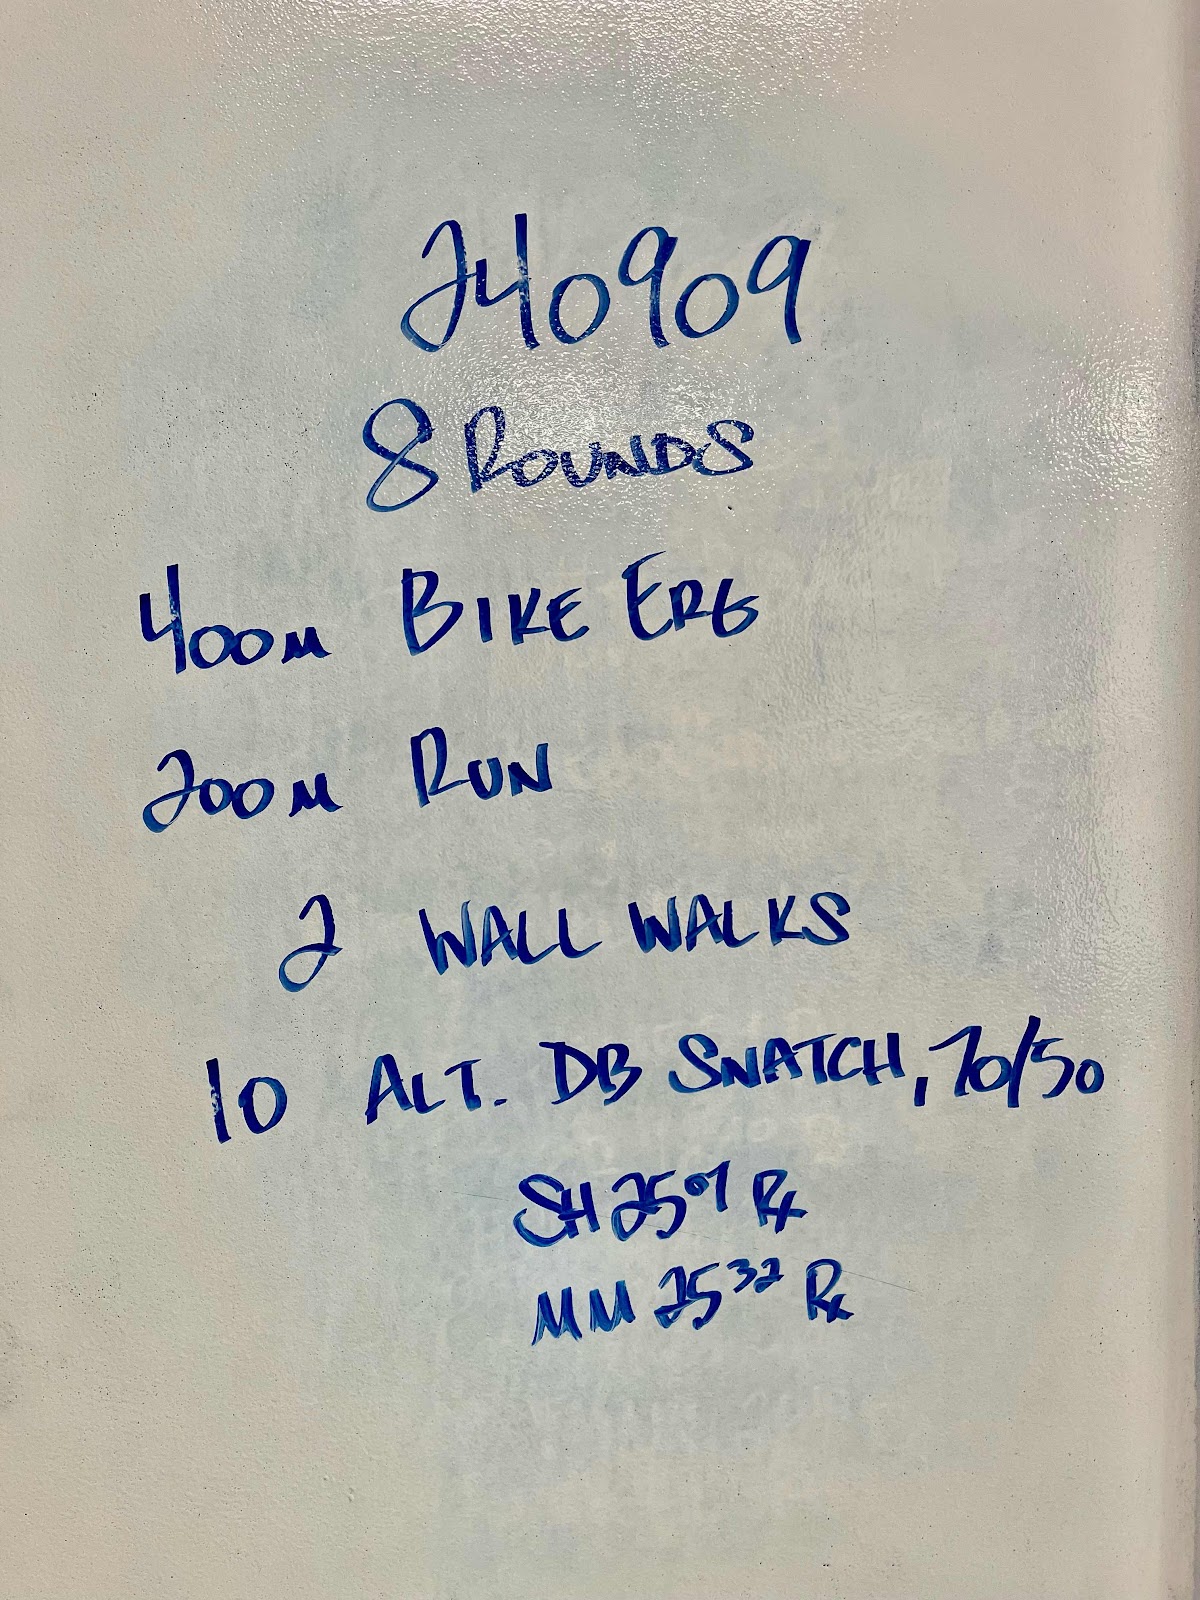 240909
8 ROUNDS
400M BIKE ERG
200M RUN
2 WALL WALKS
10 ALT. DB SNATCH, 70/50
SH 25⁰⁷ Rx
MM 25³² Rx